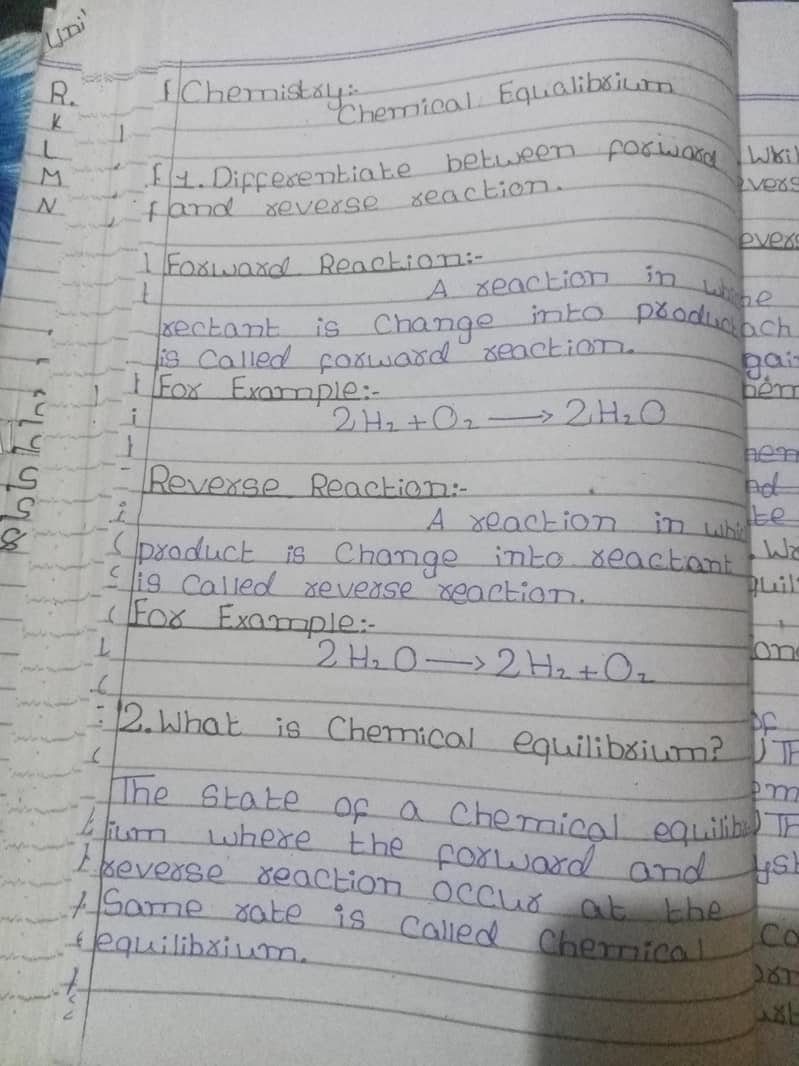 Uni
R.
K
L
M
N
Chemistry:-
Chemical Equalibrium
1. Differentiate between forward
and reverse reaction.
Forward Reaction:-
A reaction in
rectant is Change into product
is Called forward reaction.
For Example:-
2H₂ + O₂ → 2H₂O
Reverse Reaction:-
A reaction in whi
product is Change into reactant
is Called reverse reaction.
For Example:-
2H₂O → 2H₂ + O₂
2. What is Chemical equilibrium?
The State of a Chemical equilib
rium where the forward and
reverse reaction occur at the
Same rate is Called Chemical
equilibrium.